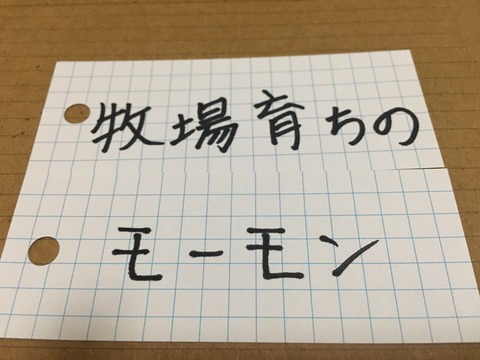 牧場育ちの
モーモン